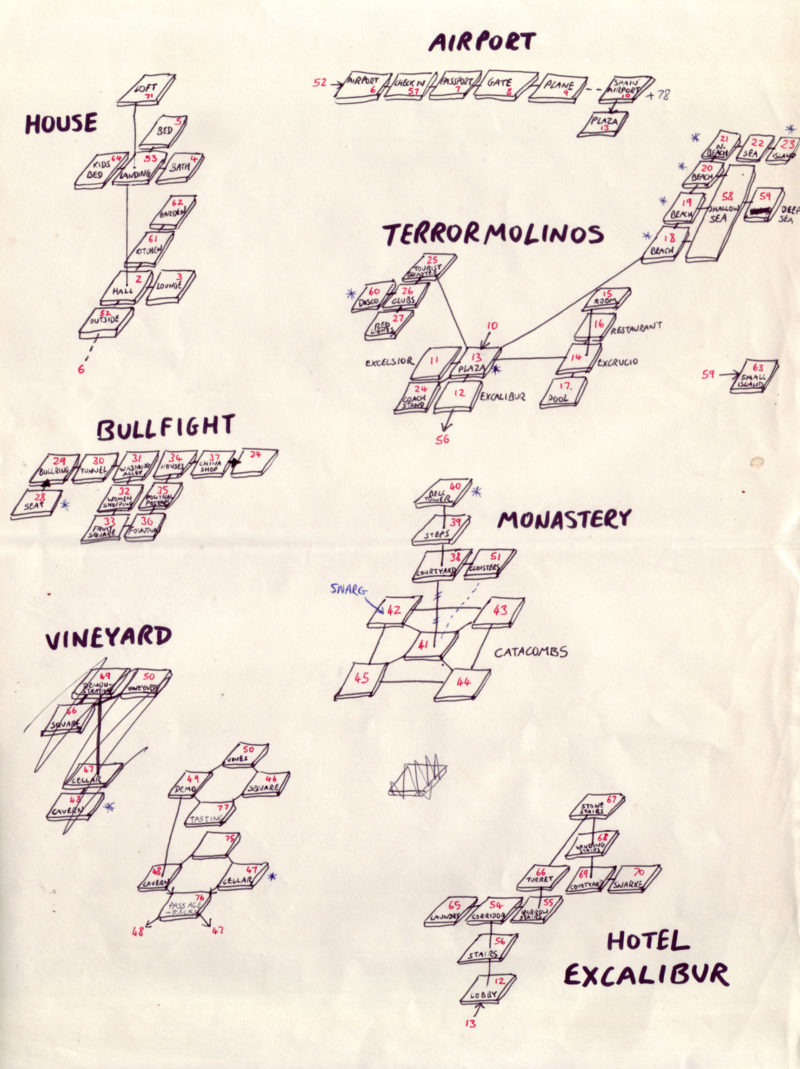 AIRPORT
52 → AIRPORT 6
CHECK IN 57
PASSPORT 7
GATE 8
PLANE 9
SPAIN AIRPORT 10
+78
PLAZA 13
HOUSE
LOFT 71
BED 5
KIDS BED 64
LANDING 53
BATH 4
GARDEN 62
KITCHEN 61
HALL 2
LOUNGE 3
OUTSIDE 52
6
TERRORMOLINOS
21 N. BEACH
22 SEA
23 ISLAND
20 BEACH
19 BEACH
18 BEACH
58 SHALLOW SEA
59 DEEP SEA
25 TOURIST
60 DISCO
26 CLUBS
27 RED LIGHTS
10
EXCELSIOR 11
13 PLAZA
24 COACH STAND
12 EXCALIBUR
56
15 ROOM
16 RESTAURANT
14 EXCRUCIO
17. POOL
59 → 63 SMALL ISLAND
BULLFIGHT
29 BULLRING
30 TUNNEL
31 WASHING ALLEY
34 HOUSES
37 CHINA SHOP
24
28 SEAT
32 WOMEN SHOPPING
35 POLITICAL
33 FRUIT SQUARE
36 FOUNTAIN
MONASTERY
40 BELL TOWER
39 STEPS
38 COURTYARD
51 CLOISTERS
SNARG
42
43
41
45
44
CATACOMBS
VINEYARD
49 DEMONSTRATION
50 VINEYARD
46 SQUARE
47 CELLAR
48 CAVERN
50 VINES
49 DEMO
46 SQUARE
77 TASTING
75
48 CAVERN
47 CELLAR
76 PASSAGE -BACK
48
47
HOTEL
EXCALIBUR
67 STONE STAIRS
68 WINDING STAIRS
66 TURRET
69 COURTYARD
70 SNARKE
65 LAUNDRY
54 CORRIDOR
55 NARROW STAIRS
56 STAIRS
12 LOBBY
13